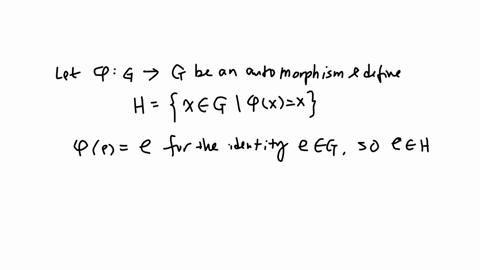 Let φ: G → G be an automorphism & define
H = { x ∈ G | φ(x)=x }
φ(e) = e for the identity e ∈ G, so e ∈ H